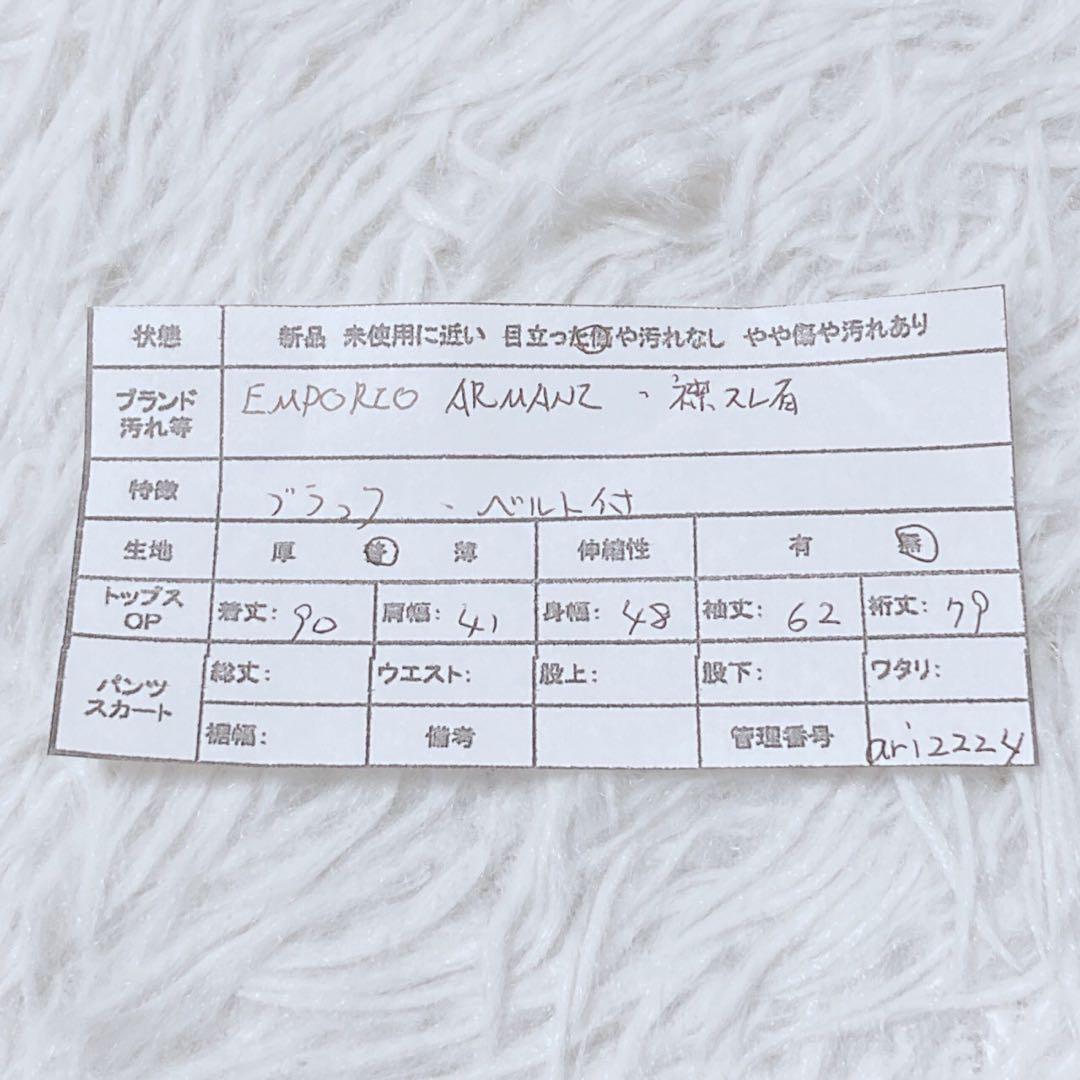 状態 新品 未使用に近い 目立った傷や汚れなし やや傷や汚れあり
ブランド
汚れ等
EMPORIO ARMANI 、襟スレ有
特徴 ブラック 、ベルト付
生地 厚 普 薄 伸縮性 有 無
トップス
OP
着丈: 90 肩幅: 41 身幅: 48 袖丈: 62 裄丈: 79
パンツ
スカート
総丈: ウエスト: 股上: 股下: ワタリ:
裾幅: 備考 管理番号 ari2224